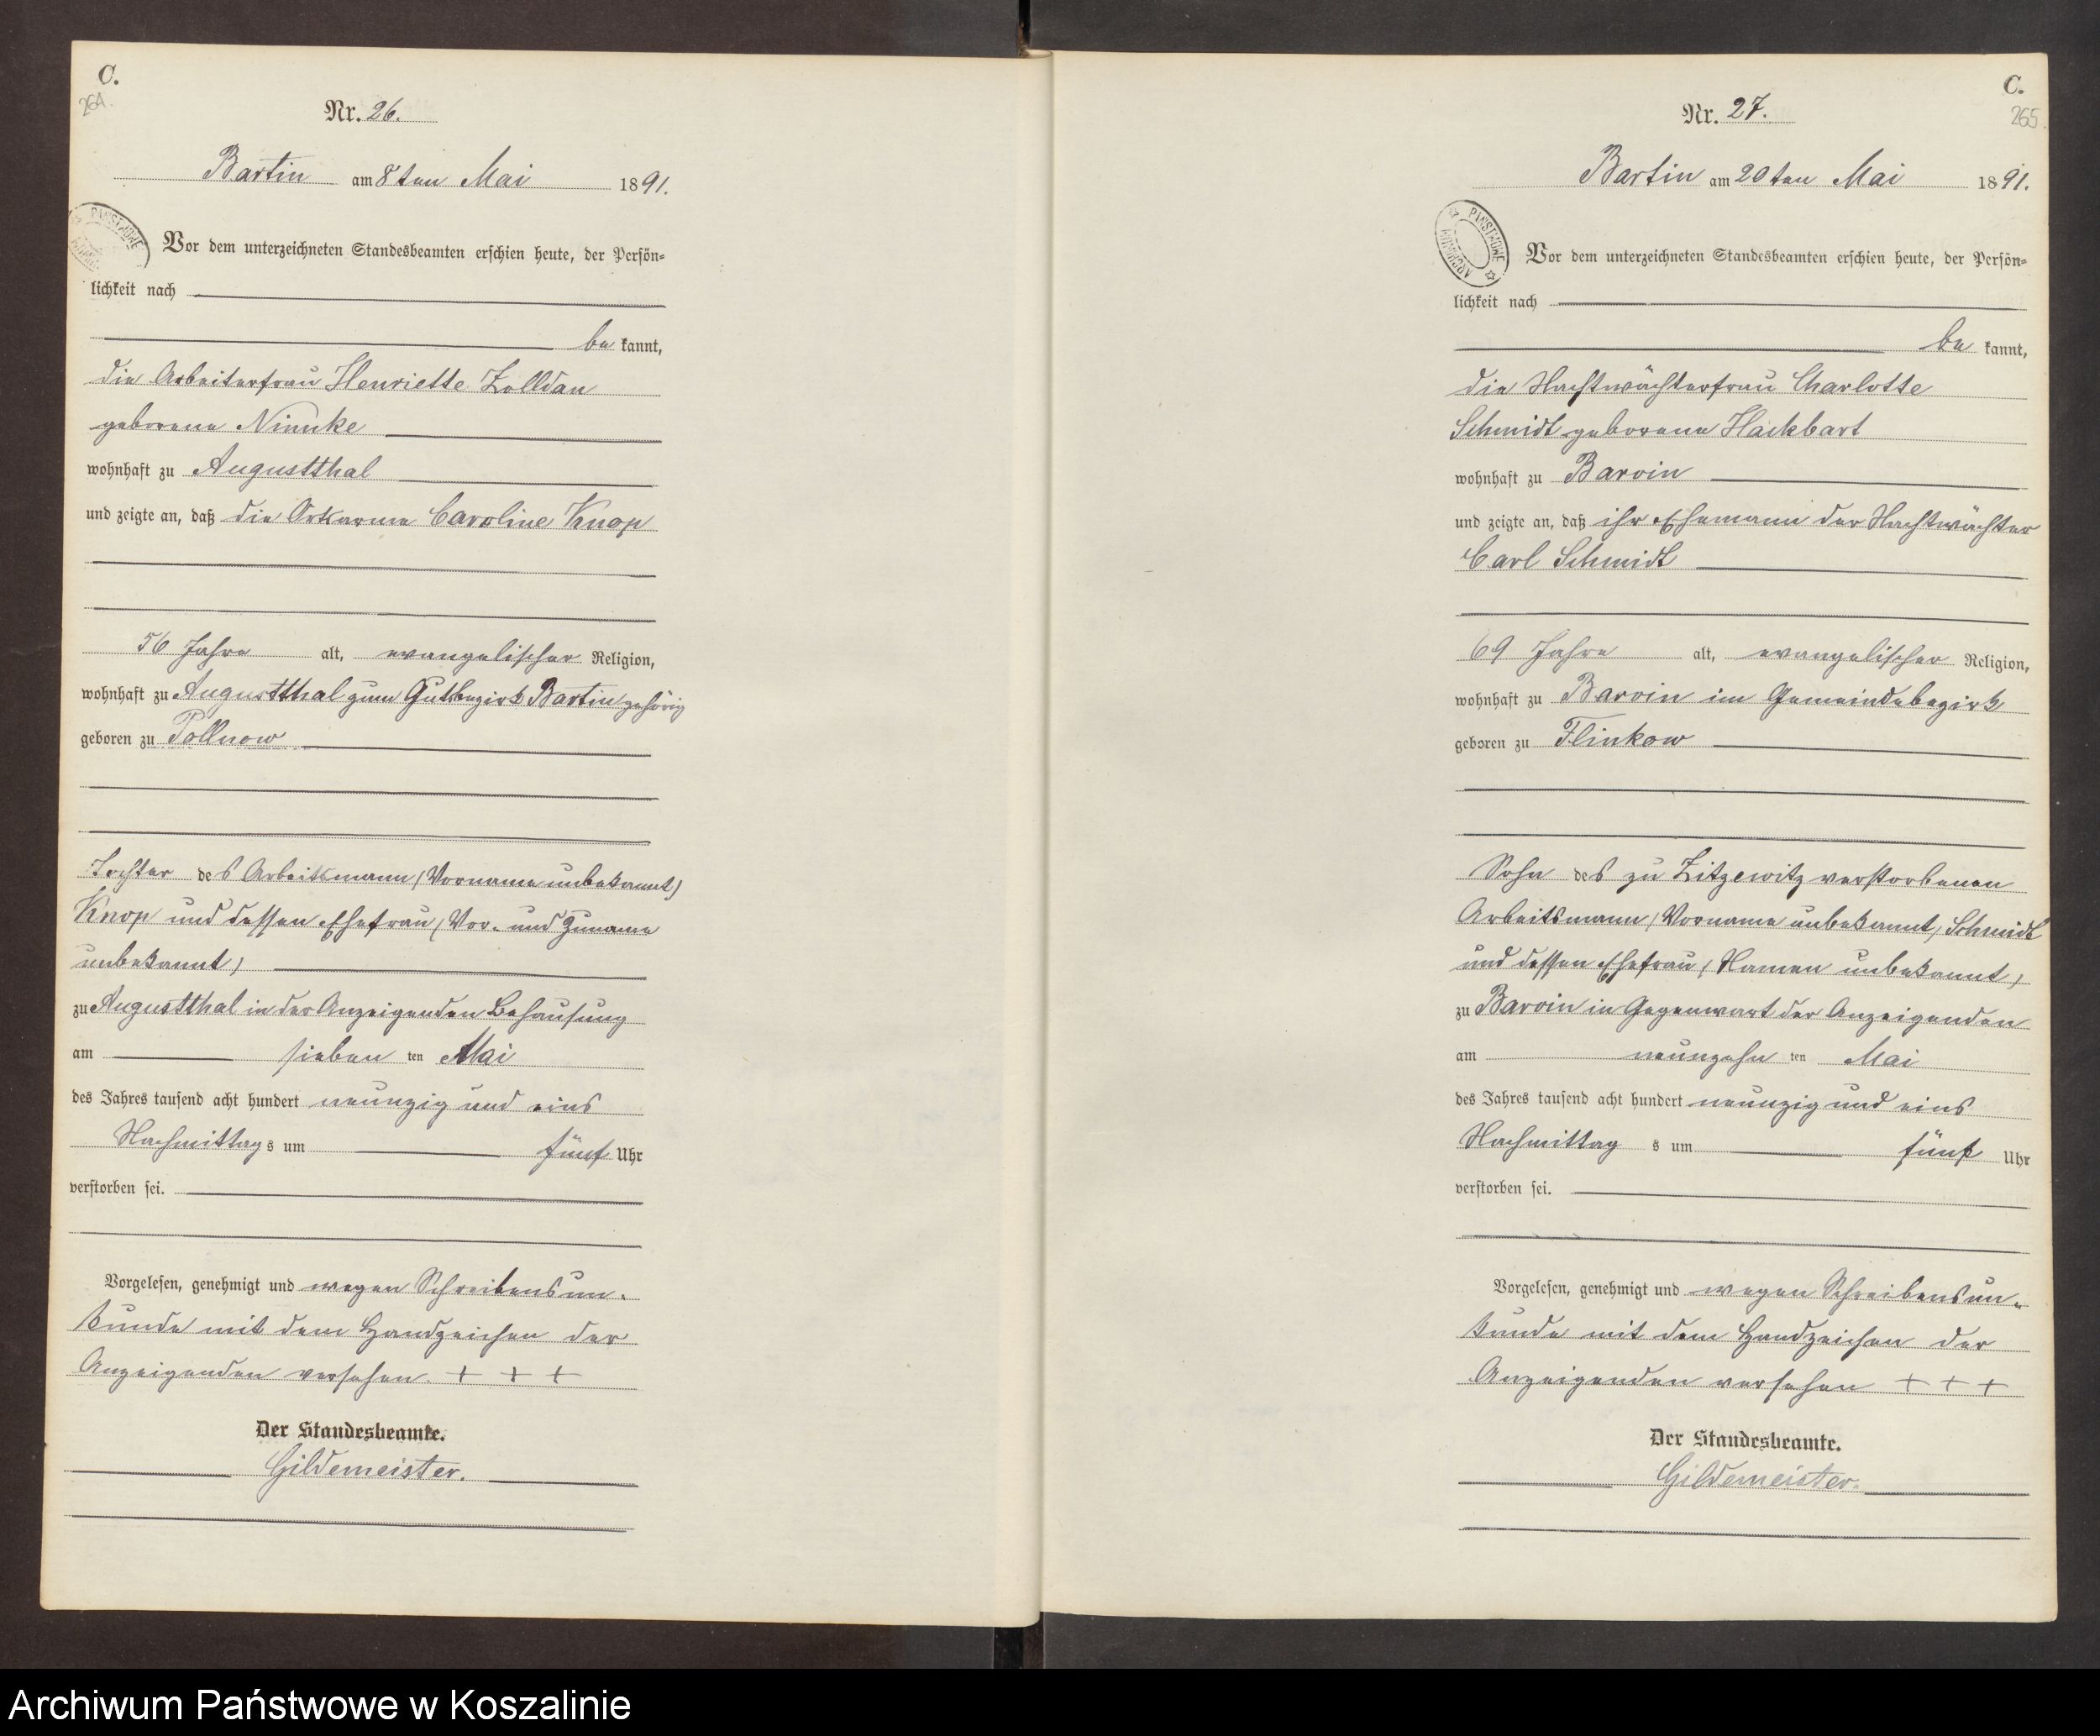 C.
264.
Nr. 26.
Bartin am 8ten Mai 1891.
Vor dem unterzeichneten Standesbeamten erschien heute, der Persön-
lichkeit nach
be kannt,
die Arbeiterfrau Henriette Zolldan
geborene Nimke
wohnhaft zu Augustthal
und zeigte an, daß die Ortsarme Caroline Knop
56 Jahre alt, evangelischer Religion,
wohnhaft zu Augustthal zum Gutsbezirk Bartin gehörig
geboren zu Pollnow
Tochter des Arbeitsmann (Vorname unbekannt)
Knop und dessen Ehefrau (Vor- und Zuname
unbekannt)
zu Augustthal in der Anzeigenden Behausung
am sieben ten Mai
des Jahres tausend acht hundert neunzig und eins
Nachmittags um fünf Uhr
verstorben sei.
Vorgelesen, genehmigt und wegen Schreibensun-
kunde mit dem Handzeichen der
Anzeigenden versehen. + + +
Der Standesbeamte.
Gildemeister.
C.
265.
Nr. 27.
Bartin am 20ten Mai 1891.
PAŃSTWOWE ARCHIWUM
Vor dem unterzeichneten Standesbeamten erschien heute, der Persön-
lichkeit nach
be kannt,
die Nachtwächterfrau Charlotte
Schmidt geborene Hackbart
wohnhaft zu Barvin
und zeigte an, daß ihr Ehemann der Nachtwächter
Carl Schmidt
69 Jahre alt, evangelischer Religion,
wohnhaft zu Barvin im Gemeindebezirk
geboren zu Flinkow
Sohn des zu Zitzewitz verstorbenen
Arbeitsmann (Vorname unbekannt) Schmidt
und dessen Ehefrau (Namen unbekannt)
zu Barvin in Gegenwart der Anzeigenden
am neunzehn ten Mai
des Jahres tausend acht hundert neunzig und eins
Nachmittag s um fünf Uhr
verstorben sei.
Vorgelesen, genehmigt und wegen Schreibensun-
kunde mit dem Handzeichen der
Anzeigenden versehen + + +
Der Standesbeamte.
Gildemeister.
Archiwum Państwowe w Koszalinie